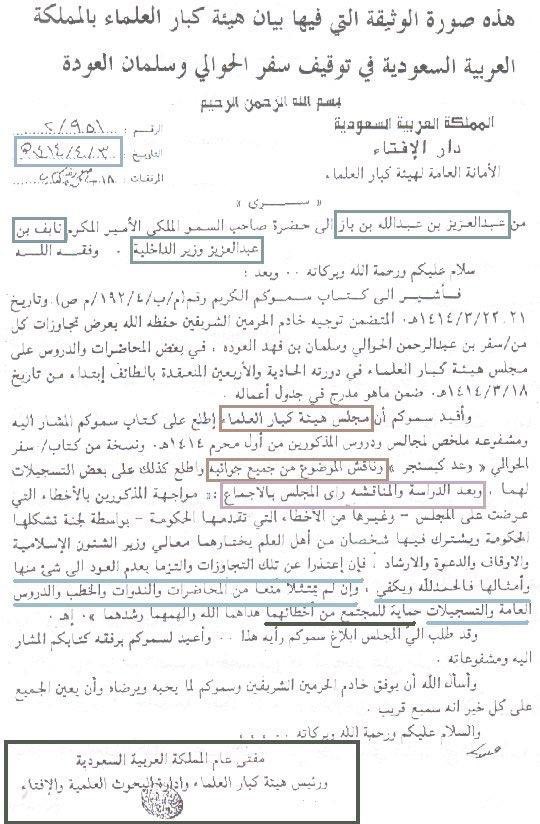 هذه صورة الوثيقة التي فيها بيان هيئة كبار العلماء بالمملكة
العربية السعودية في توقيف سفر الحوالي وسلمان العودة
بسم الله الرحمن الرحيم
المملكة العربية السعودية
دار الإفتاء
الأمانة العامة لهيئة كبار العلماء
الرقم : ٢/٩٥١
التاريخ : ١٤١٤/٤/٣هـ
المرفقات :
« ســـري »
من عبدالعزيز بن عبدالله بن باز الى حضرة صاحب السمو الملكي الأمير المكرم نايف بن
عبدالعزيز وزير الداخلية . وفقـه اللـه
سلام عليكم ورحمة الله وبركاته ٠٠ وبعد :
فـأشيـر الى كـتـاب سموكم الكريم رقم(م/ب/١٩٢/٤/م ص) وتاريخ
٢١،٢٢/٣/١٤١٤هـ المتضمن توجيه خادم الحرمين الشريفين حفظه الله بعرض تجاوزات كل
من/سفر بن عبدالرحمن الحوالي وسلمان بن فهد العوده ، في بعض المحاضرات والدروس على
مجلس هيئـة كبـار العلماء في دورته الحادية والأربعين المنعقدة بالطائف إبتـداء من تاريخ
١٤١٤/٣/١٨هـ ضمن ماهو مدرج في جدول أعماله .
وأفيـد سموكم أن مجلس هيئة كبار العلماء إطلع على كتاب سموكم المشار اليه
ومشفوعه ملخص لمجالس ودروس المذكورين من أول محرم ١٤١٤هـ ونسخة من كتاب/ سفر
الحوالي « وعد كيسنجر » وناقش الموضوع من جميع جوانبه واطلع كذلك على بعض التسجيلات
لهما . وبعد الدراسة والمناقشه رأى المجلس بالاجماع :« مواجهة المذكورين بالأخطاء التي
عرضت على المجلس - وغيرها من الأخطاء التي تقدمهـا الحكومـة - بواسطة لجنة تشكلها
الحكومة ويشترك فيها شخصان من أهل العلم يختارهما معالي وزير الشئون الإسلامية
والاوقاف والدعوة والارشاد ، فإن إعتذرا عن تلك التجاوزات والتزما بعدم العود الى شئ منها
وأمثالها فالحمدلله ويكفي ، وإن لم يمتثلا منعا من المحاضرات والندوات والخطب والدروس
العامة والتسجيلات حماية للمجتمع من أخطائهما هداهما الله والهمهما رشدهما » . إهـ .
وقد طلب الي المجلس ابلاغ سموكم رأيه هذا ٠٠ وأعيد لسموكم برفقه كتابكم المشار
اليه ومشفوعاته .
وأسأل الله أن يوفق خادم الحرمين الشريفين وسموكم لما يحبه ويرضاه وأن يعين الجميع
على كل خير انه سميع قريب .
والسلام عليكم ورحمة الله وبركاته ٠٠٠٠
مفتي عام المملكة العربية السعودية
ورئيس هيئة كبار العلماء وإدارة البحوث العلمية والإفتاء